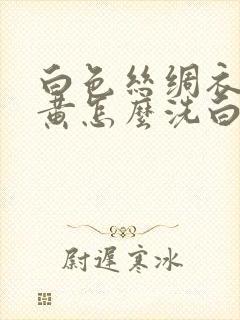 白色絲绸衣
黄怎麼洗白
尉遲寒冰